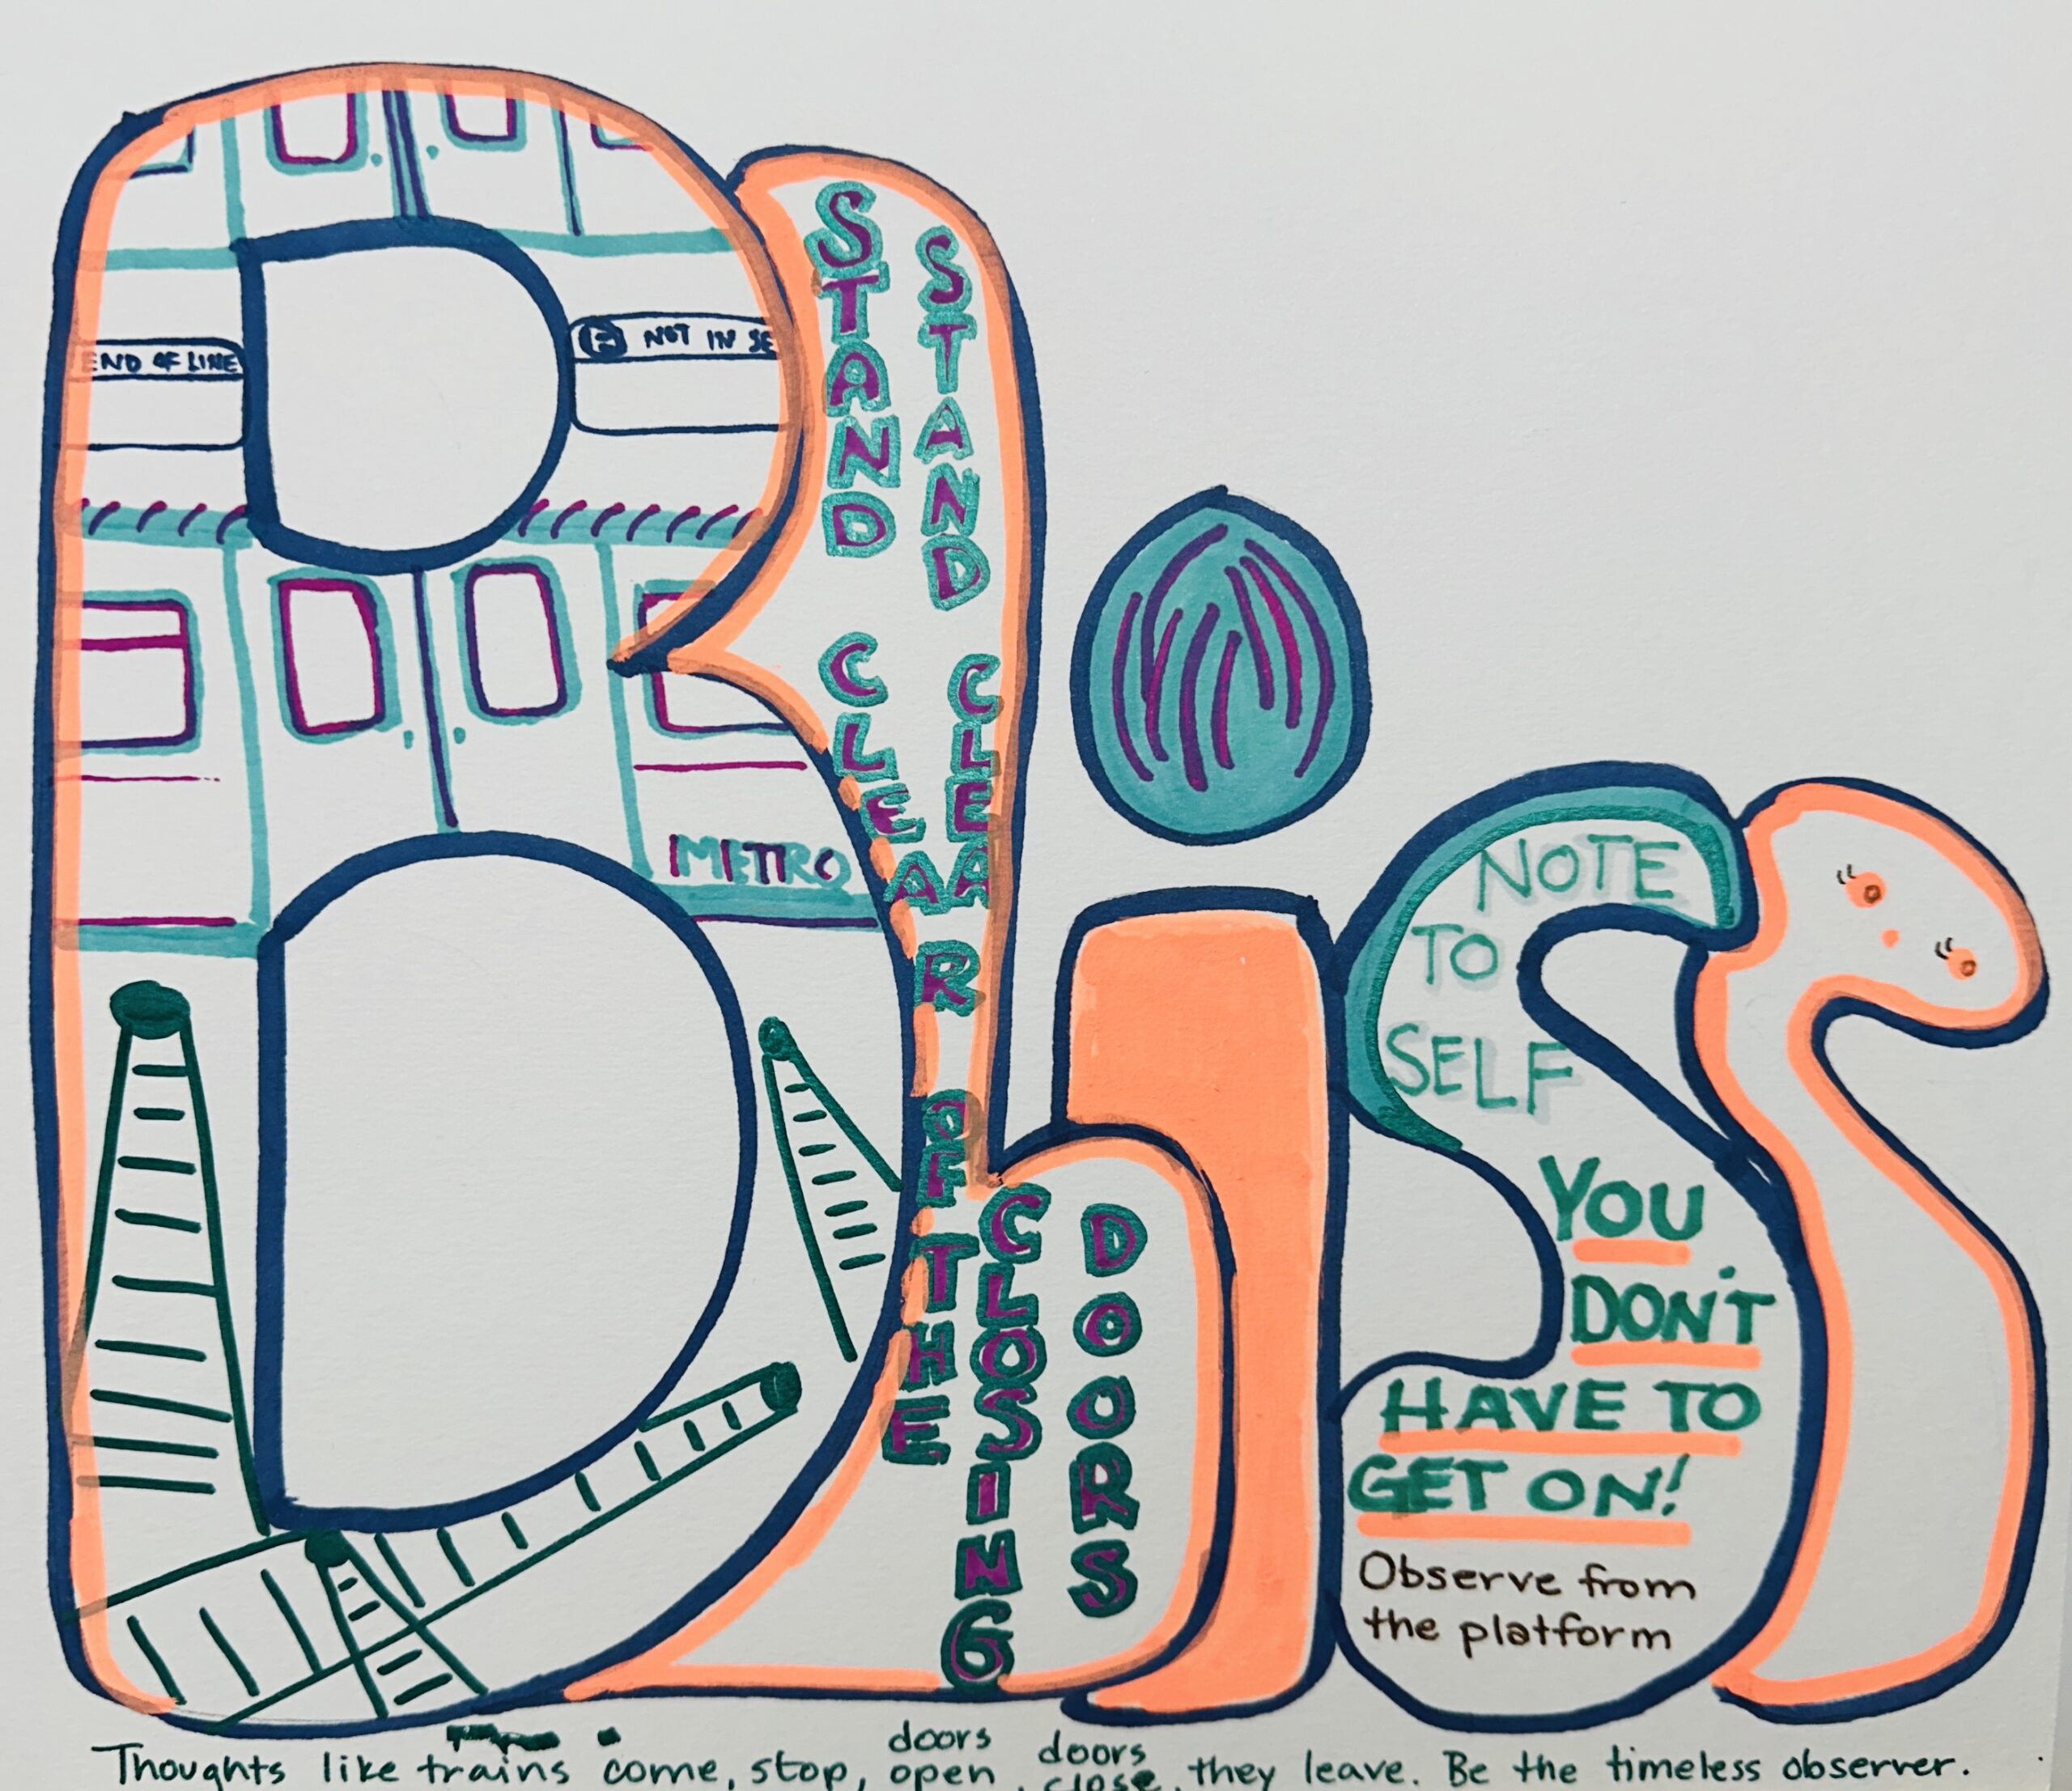 Bliss
END OF LINE
NOT IN SE
METRO
STAND CLEAR
STAND CLEAR OF THE
CLOSING
DOORS
NOTE
TO
SELF
YOU
DON'T
HAVE TO
GET ON!
Observe from
the platform
Thoughts like trains come, stop, doors open, doors close, they leave. Be the timeless observer.